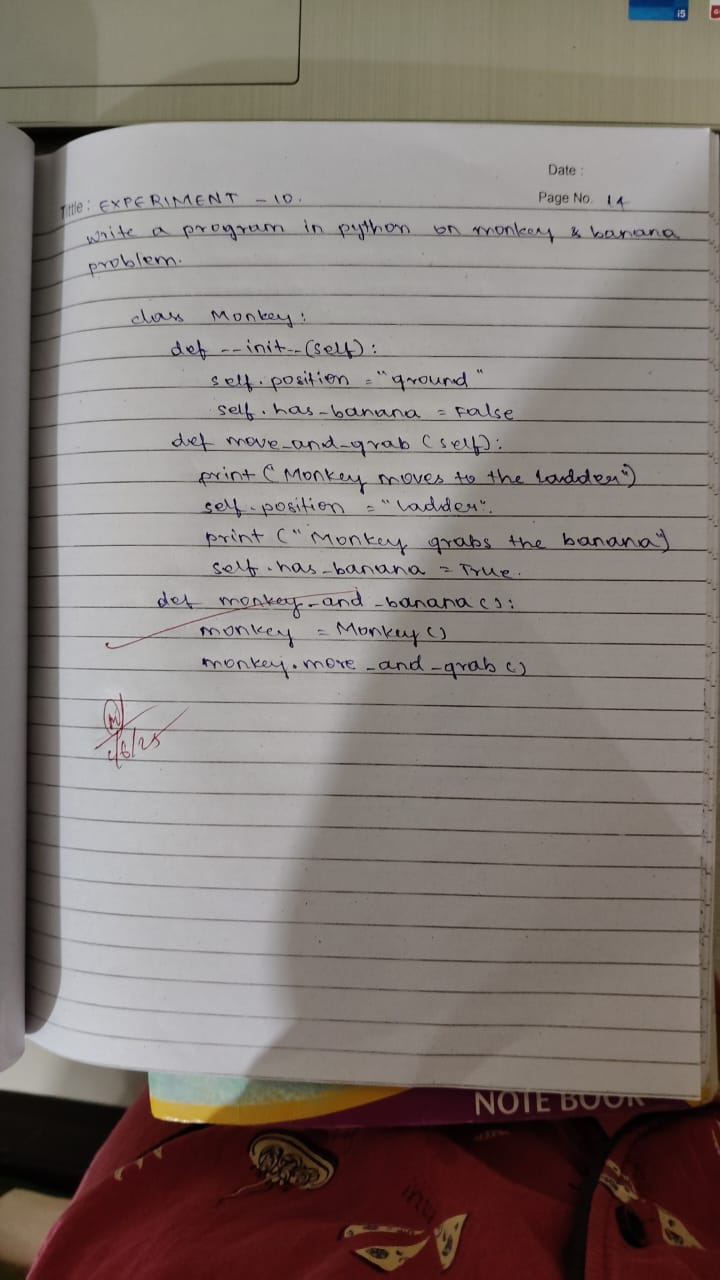 i5
Date :
Page No. 14
Title : EXPERIMENT - 10.
Write a program in python on monkey & banana
problem.
class Monkey:
def --init--(self):
self.position = "ground"
self.has-banana = False
def move-and-grab (self):
print ("Monkey moves to the ladder")
self.position = "ladder".
print ("Monkey grabs the banana")
self.has-banana = True.
def monkey-and-banana():
monkey = Monkey()
monkey.move-and-grab()
/6/25
NOTE BOOK